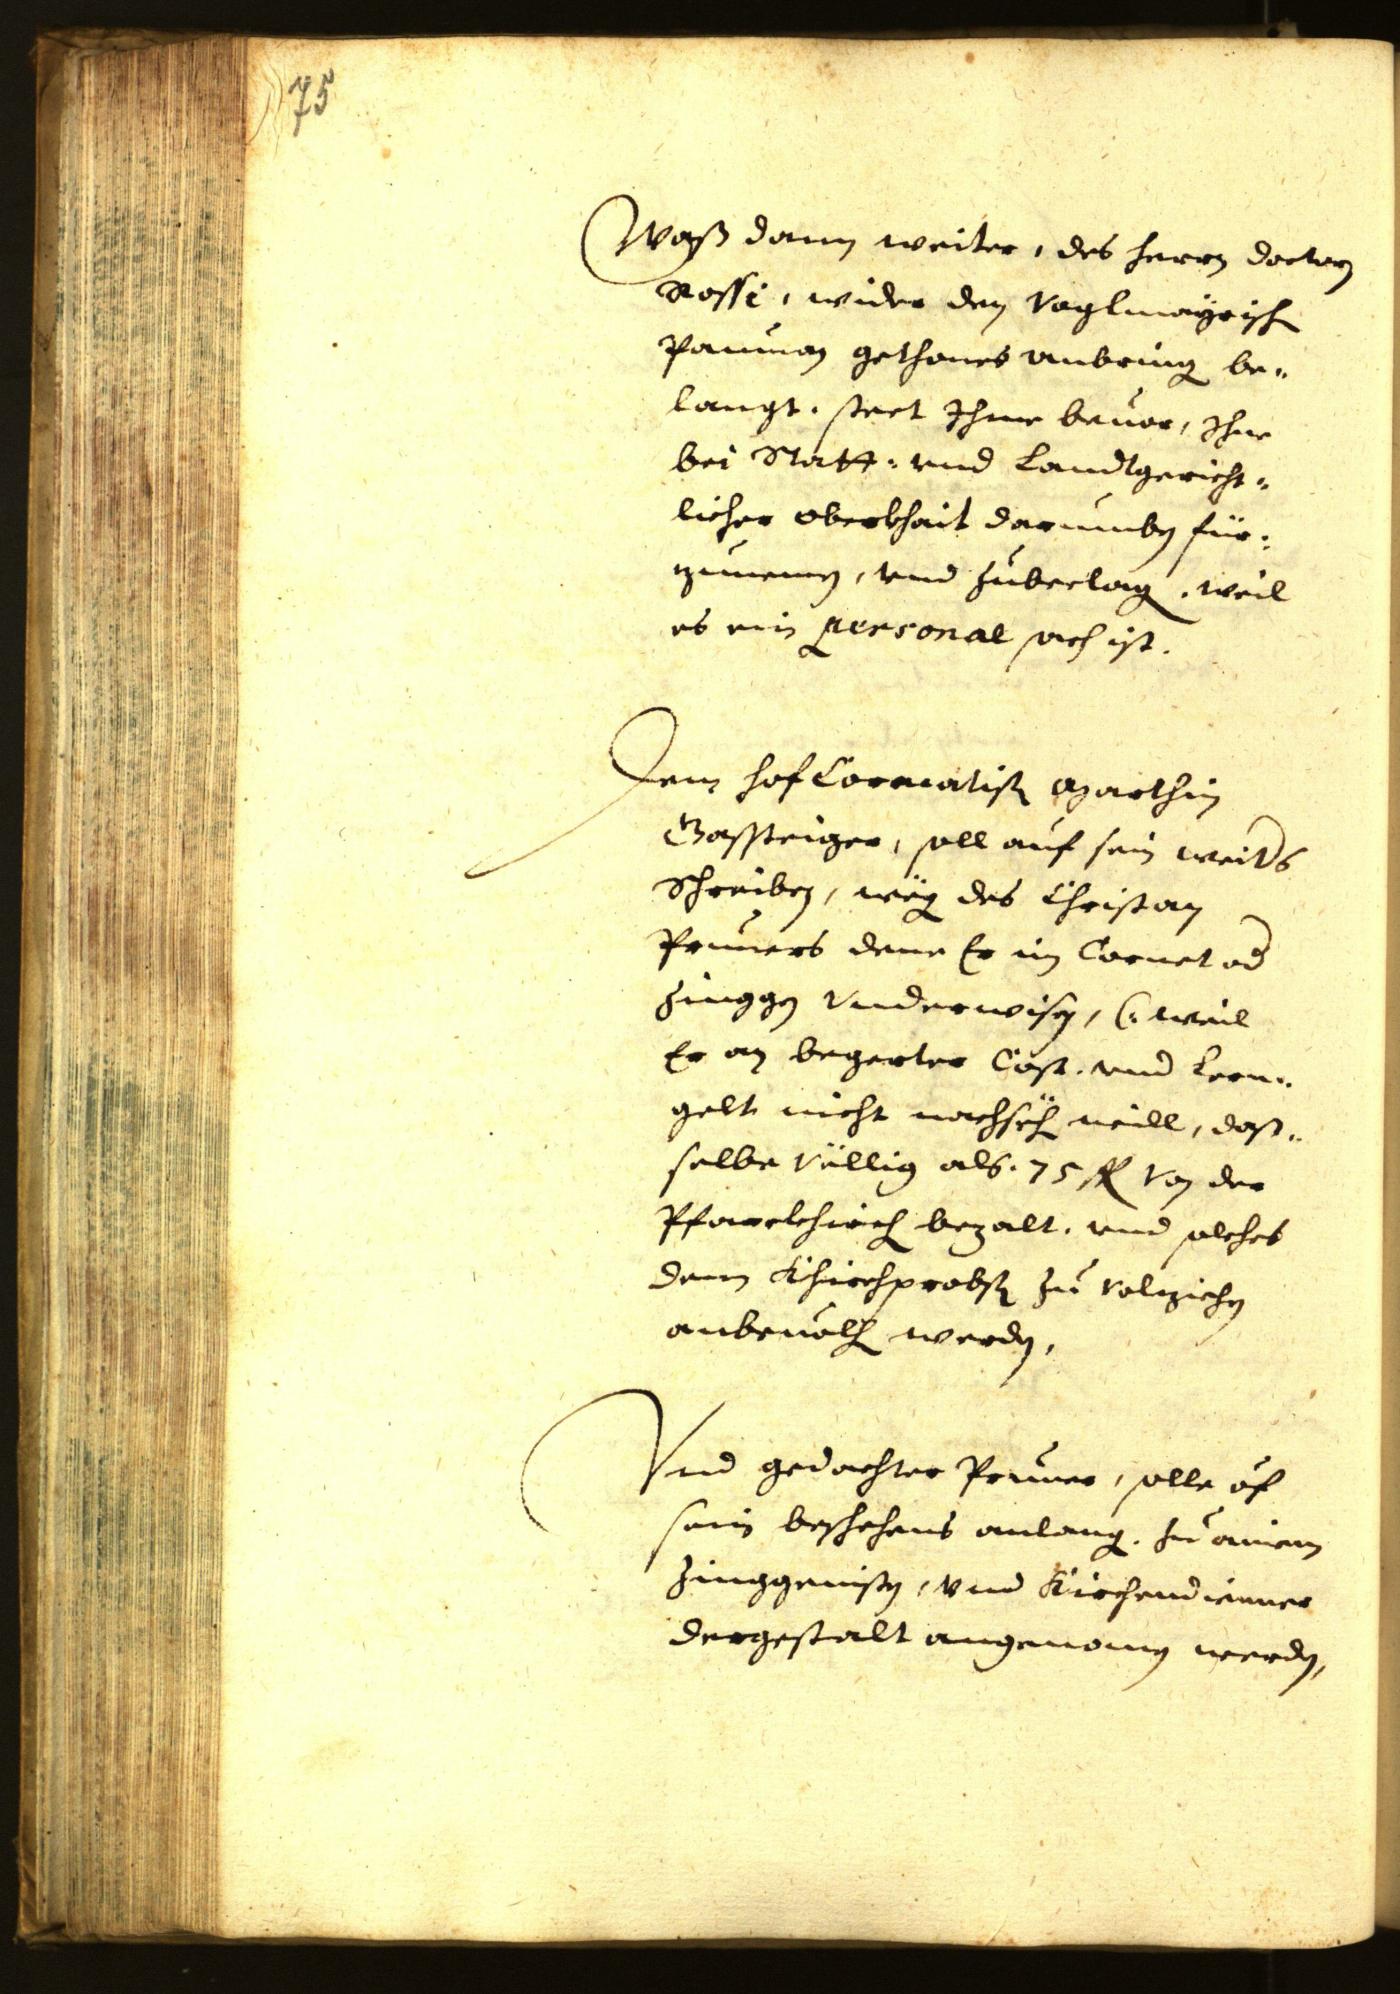 75
Waß dann weiter, des herrn doctorn
Rossi, wider den Voglmayrisch
Pauman gethones anbring be-
langt. steet Ihme beuor, Ihne
bei Statt- und Landtgericht-
licher oberkhait darumben für-
zunemen, und zubeclag, weil
es ein personal sach ist.
Dem hof Cornatisten Marthin
Gassteiger, soll auf sein weiters
Schreiben, weg des Christan
Pruners dene Er im Cornet od
Zinggen Underwisen, (: weil
Er an begerter Cost. und Lern-
gelt nicht nachsech will, dass-
selbe völlig als. 75 fl Von der
Pfarrkhirch bezalt. und solches
dem Khirchprobst zu volziehen
anbeuolch werden,
Und gedachter Pruner, solle auf
sein beschehens anlang. zu ainem
Zinggenisten, und Kirchendienner
dergestalt angenomen werden,